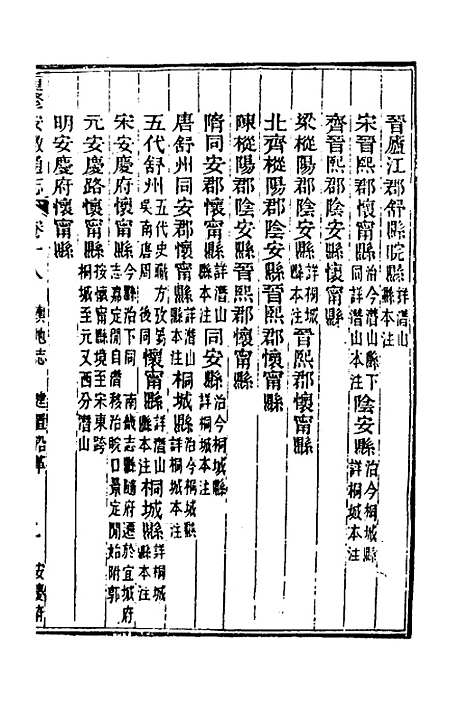 晉廬江郡舒縣皖縣詳潛山縣本注
宋晉熙郡懷甯縣治今潛山縣下同詳潛山本注陰安縣治今桐城縣詳桐城本注
齊晉熙郡陰安縣懷甯縣
梁樅陽郡陰安縣詳桐城縣本注晉熙郡懷甯縣
北齊樅陽郡陰安縣晉熙郡懷甯縣
陳樅陽郡陰安縣晉熙郡懷甯縣
隋同安郡懷甯縣詳潛山縣本注同安縣治今桐城縣詳桐城本注
唐舒州同安郡懷甯縣詳潛山縣本注桐城縣治今桐城縣詳桐城本注
五代舒州五代史職方攷吳南唐周後同懷甯縣詳潛山縣本注桐城縣詳桐城縣本注
宋安慶府懷甯縣今縣治下同南畿志縣隨府遷於宜城府志嘉定閒自潛移治皖口景定閒始附郭
元安慶路懷甯縣按懷甯縣境至宋東跨桐城至元又西分潛山
明安慶府懷甯縣
重修安徽通志 卷十八 輿地志 建置沿革 安慶府